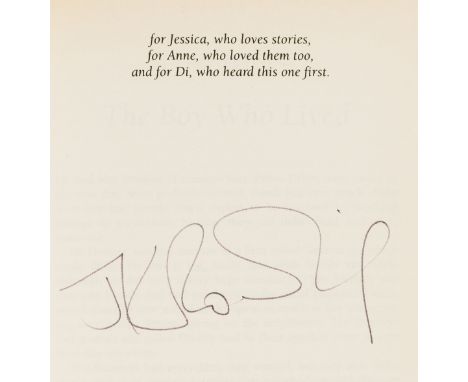 for Jessica, who loves stories,
for Anne, who loved them too,
and for Di, who heard this one first.
The Boy Who Lived
JK Rowling